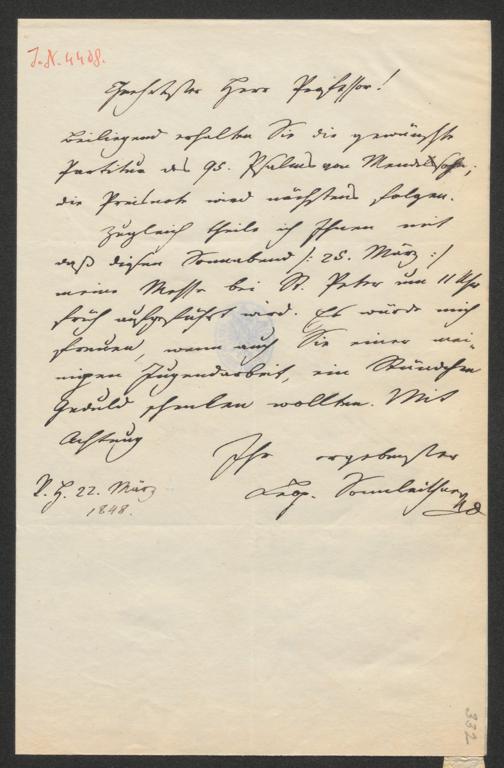 J. N. 4408.
Geehrtester Herr Professor!
Beiliegend erhalten Sie die gewünschte
Partitur des 95. Psalms von Mendelssohn;
die Preisnote wird nächstens folgen.
Zugleich theile ich Ihnen mit
daß diesen Sonnabend /: 25. März :/
meine Messe bei St. Peter um 11 Uhr
früh aufgeführt wird. Es würde mich
freuen, wenn auch Sie einer mei-
nigen Jugendarbeit, ein Stündchen
Geduld schenken wollten. Mit
Achtung
Ihr ergebenster
Leop. Sonnleithner
V. H. 22. März
1848.
332